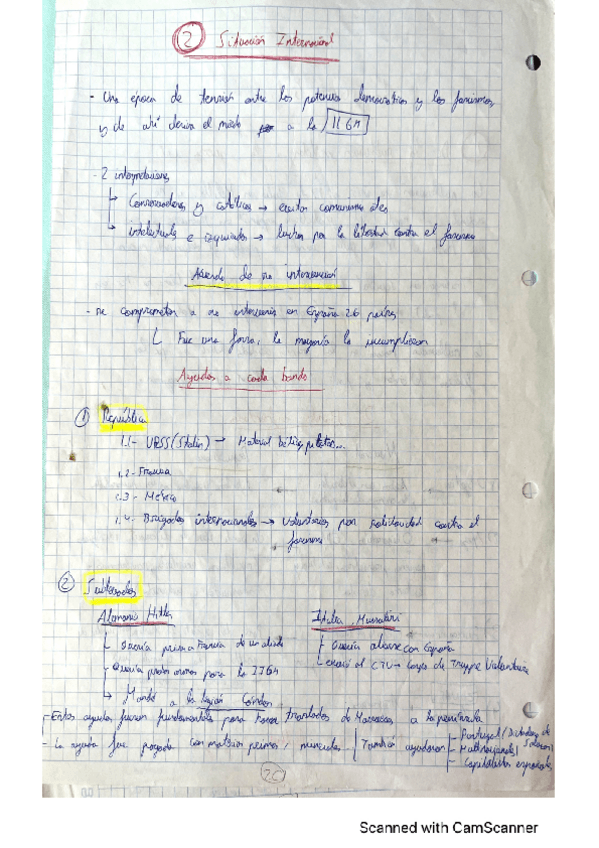 ② Situación Internacional
- Una época de tensión entre las potencias democráticas y los fascismos
y de ahí deriva el miedo a la IIGM
- 2 interpretaciones
Conservadores y católicos → evitar comunismo
intelectuales e izquierdas → lucha por la libertad contra el fascismo
Acuerdo de no intervención
- se comprometen a no intervenir en España 26 países
Fue una farsa, la mayoría la incumplieron
Ayudas a cada bando
① República
1.1- URSS (Stalin) → Material bélico, pilotos...
1.2- Francia
1.3- México
1.4- Brigadas internacionales → Voluntarios por solidaridad contra el
fascismo
② Sublevados
Alemania Hitler
Quería privar a Francia de un aliado
Quería probar armas para la IIGM
Mandó a la Legión Cóndor
Italia Mussolini
Quería aliarse con España
envió al CTV → Corpo di Truppe Volontarie
- Estas ayudas fueron fundamentales para hacer traslados de Marruecos a la península
- La ayuda fue pagada con materias primas/ minerales
También ayudaron
- Portugal (Dictadura de Salazar)
- Multinacionales
- Capitalistas españoles
26
Scanned with CamScanner